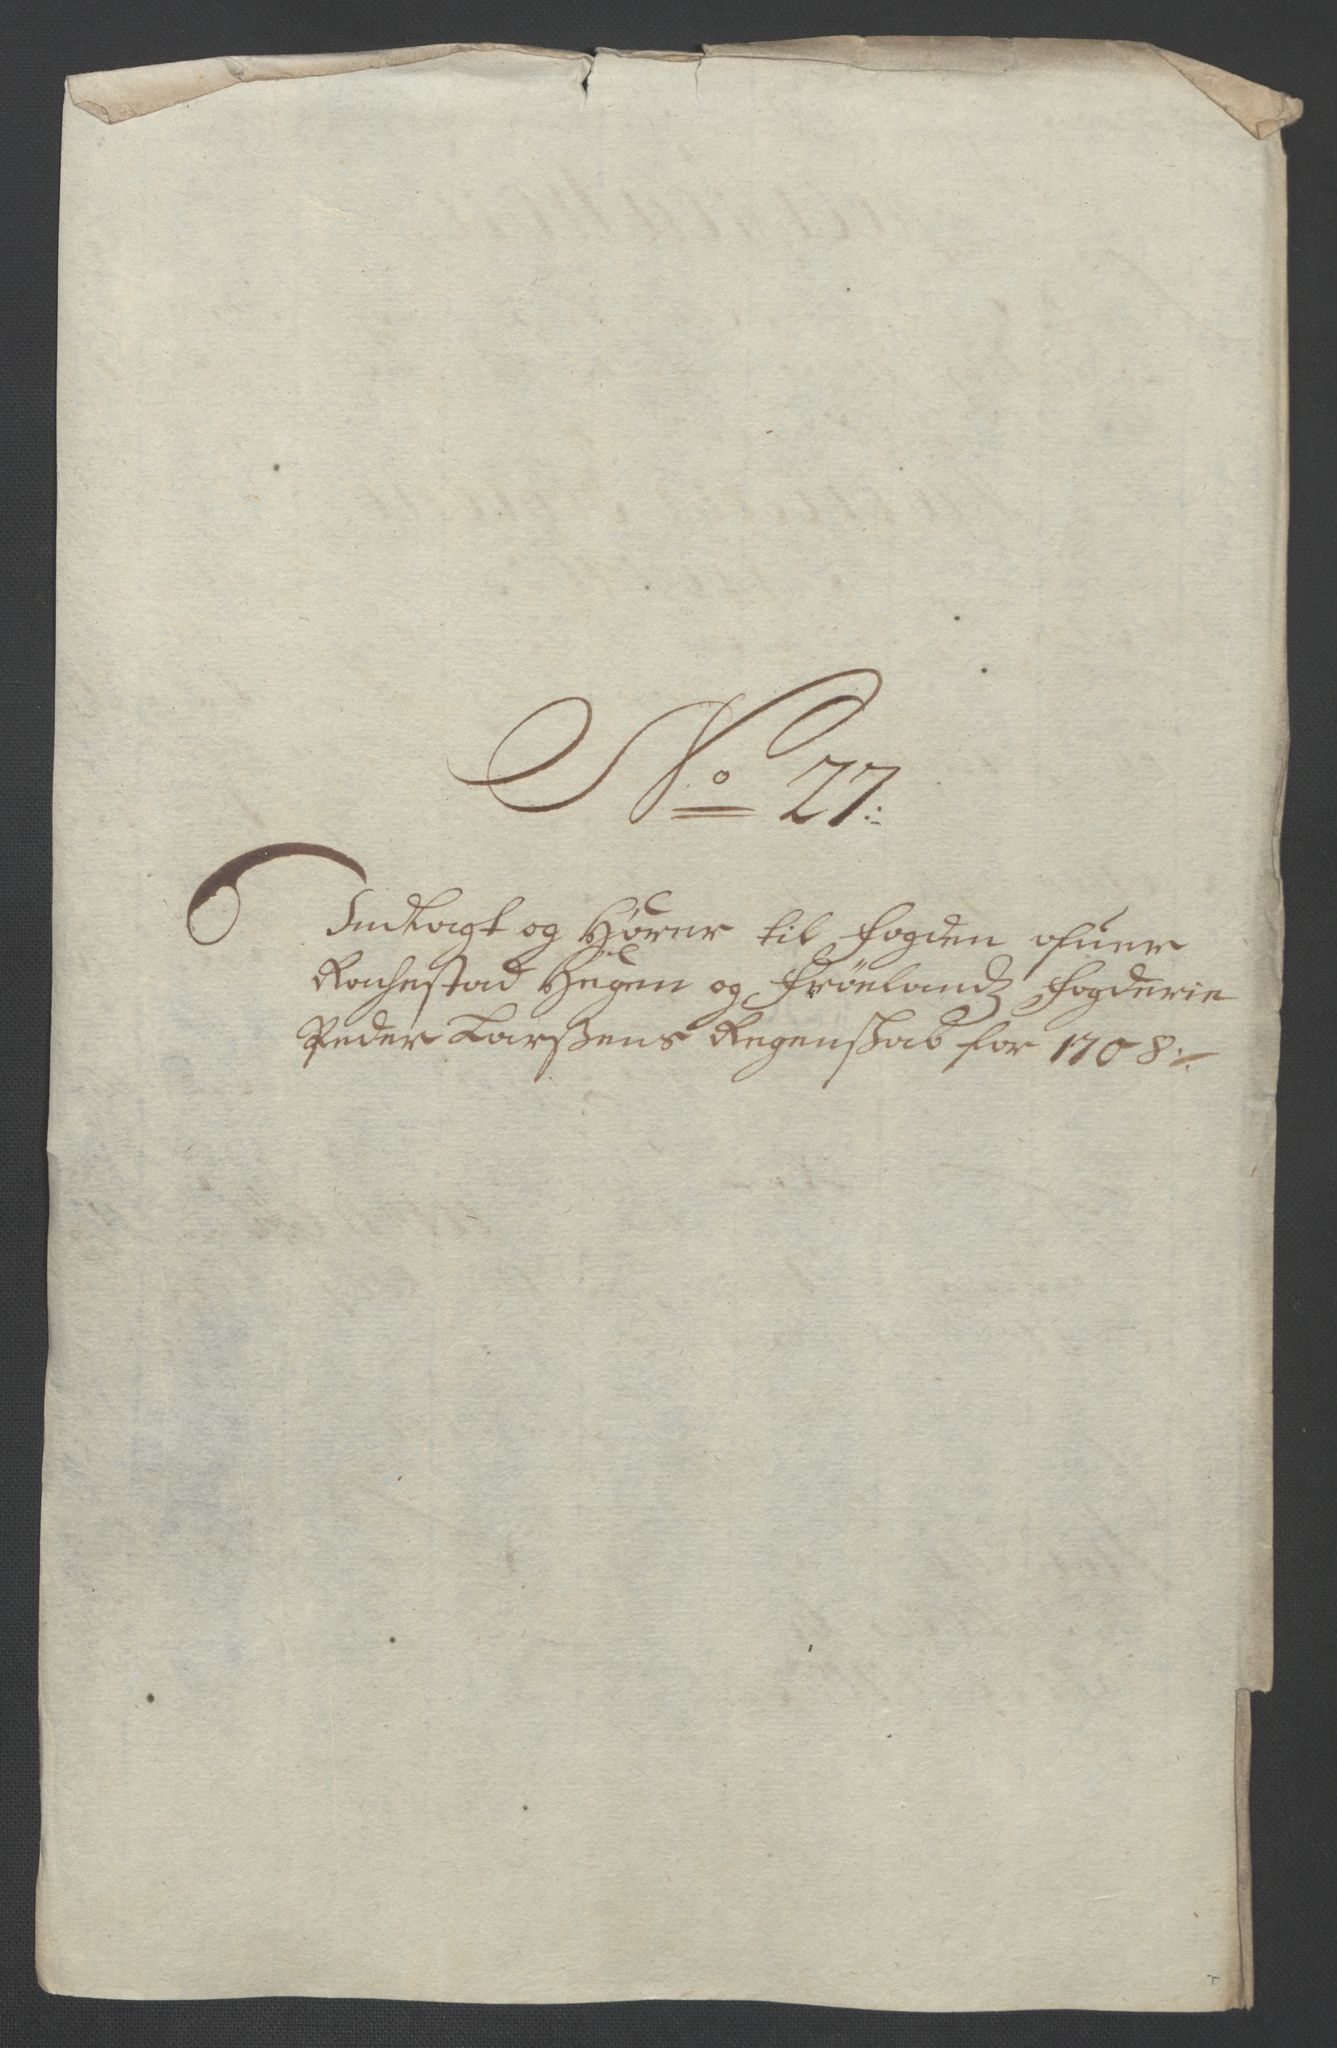 No 27:
Indlagt og Hører til fogden ofuer
Rachestad Heggen og Frölandz fogderie
Peder Larßens Regenskab for 1708: